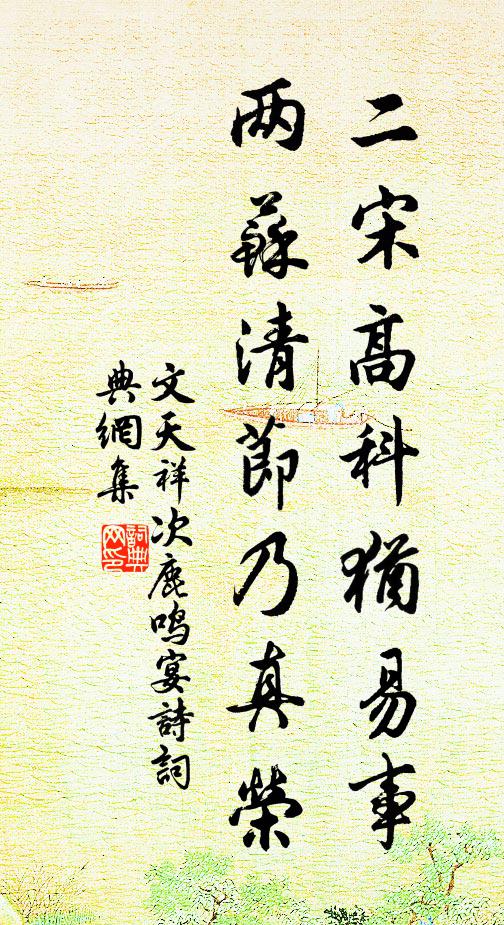 二宋高科犹易事
两蘇清節乃真榮
文天祥次鹿鸣宴詩詞
典網集
詞典
网印